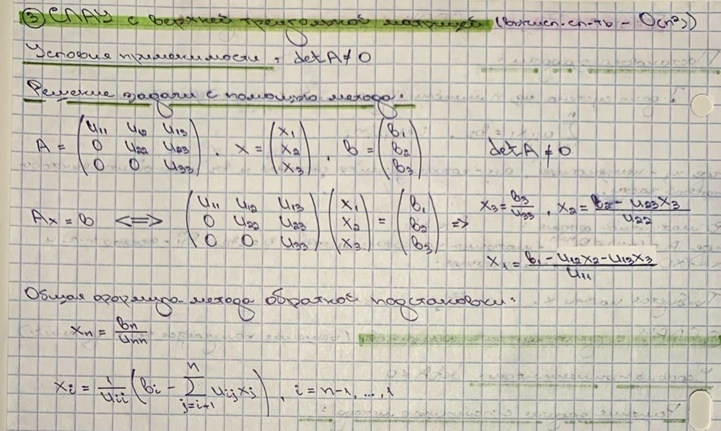 ③ СЛАУ с верхней треугольной матрицей (вычисл. сл-ть - O(n²))
Условия применимости: det A ≠ 0
Решение задачи с помощью метода:
A = (u₁₁ u₁₂ u₁₃; 0 u₂₂ u₂₃; 0 0 u₃₃), x = (x₁; x₂; x₃), b = (b₁; b₂; b₃) det A ≠ 0
Ax = b <=> (u₁₁ u₁₂ u₁₃; 0 u₂₂ u₂₃; 0 0 u₃₃) (x₁; x₂; x₃) = (b₁; b₂; b₃) => x₃ = b₃/u₃₃, x₂ = (b₂ - u₂₃x₃)/u₂₂
x₁ = (b₁ - u₁₂x₂ - u₁₃x₃)/u₁₁
Общая формула метода обратной подстановки:
xₙ = bₙ/uₙₙ
xᵢ = 1/uᵢᵢ (bᵢ - ∑ⱼ₌ᵢ₊₁ⁿ uᵢⱼxⱼ), i = n-1, ..., 1